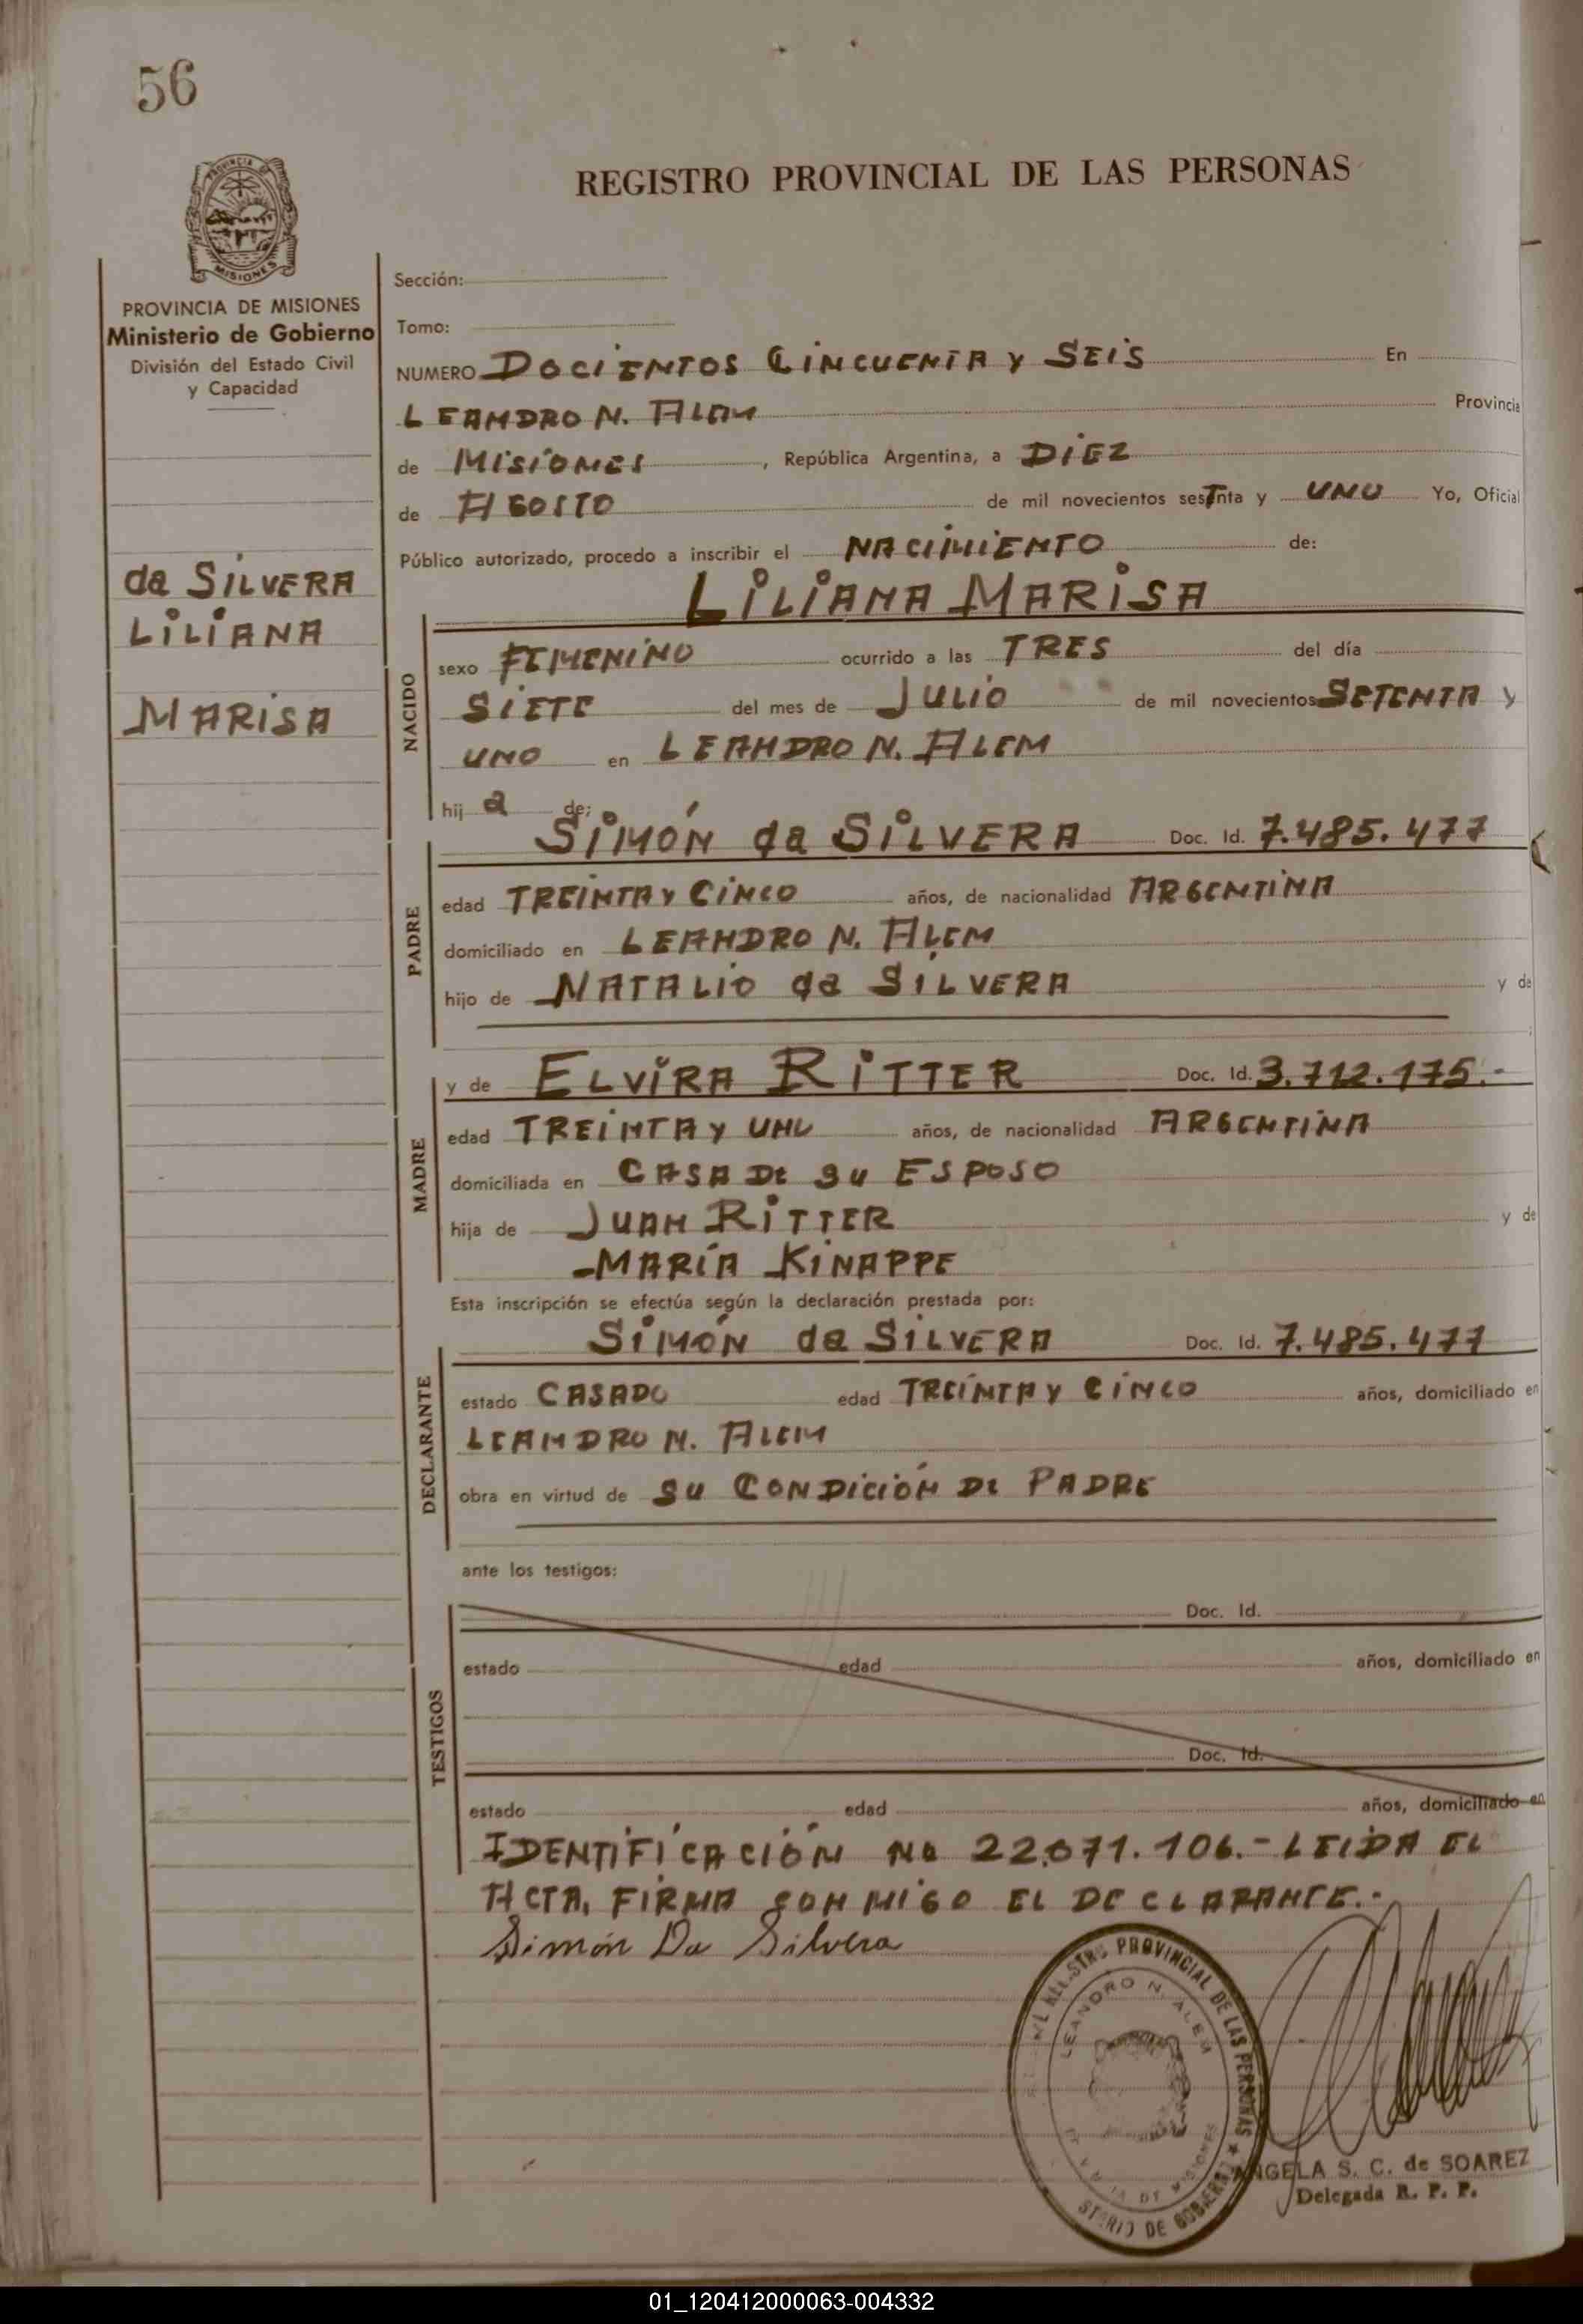 56
PROVINCIA DE
MISIONES
REGISTRO PROVINCIAL DE LAS PERSONAS
PROVINCIA DE MISIONES
Ministerio de Gobierno
División del Estado Civil
y Capacidad
da SILVERA
LILIANA
MARISA
Sección:
Tomo:
NUMERO DOCIENTOS CINCUENTA Y SEIS En
LEANDRO N. ALEM Provincia
de MISIONES, República Argentina, a DIEZ
de AGOSTO de mil novecientos sesTnta y UNO Yo, Oficial
Público autorizado, procedo a inscribir el NACIMIENTO de:
LILIANA MARISA
NACIDO
sexo FEMENINO ocurrido a las TRES del día
SIETE del mes de JULIO de mil novecientos SETENTA Y
UNO en LEANDRO N. ALEM
hij a de:
SIMÓN da SILVERA Doc. Id. 7.485.477
PADRE
edad TREINTA Y CINCO años, de nacionalidad ARGENTINA
domiciliado en LEANDRO N. ALEM
hijo de NATALIO da SILVERA y de
y de ELVIRA RITTER Doc. Id. 3.712.175.-
MADRE
edad TREINTA Y UNO años, de nacionalidad ARGENTINA
domiciliada en CASA DE SU ESPOSO
hija de JUAN RITTER y de
MARÍA KINAPPE
Esta inscripción se efectúa según la declaración prestada por:
SIMÓN da SILVERA Doc. Id. 7.485.477
DECLARANTE
estado CASADO edad TREINTA Y CINCO años, domiciliado en
LEANDRO N. ALEM
obra en virtud de SU CONDICIÓN DE PADRE
ante los testigos:
TESTIGOS
Doc. Id.
estado edad años, domiciliado en
Doc. Id.
estado edad años, domiciliado en
IDENTIFICACIÓN No 22.071.106.- LEIDA EL
ACTA, FIRMA CONMIGO EL DECLARANTE.-
Simón Da Silvera
PROVINCIAL DE LAS PERSONAS
LEANDRO N. ALEM
DE MISIONES
DE GOBIERNO
ANGELA S. C. de SOAREZ
Delegada R. P. P.
01_120412000063-004332